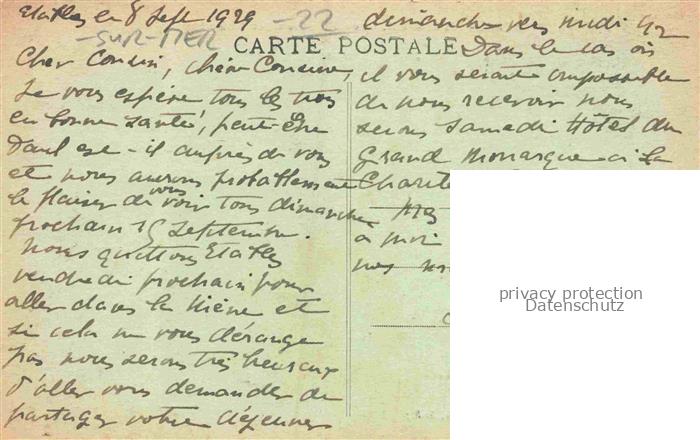 Etables en 8 Sept 1929
-22
-SUR-MER
CARTE POSTALE
Cher Cousin, chère Cousine,
Je vous espère tous les trois
en bonne santé, peut-être
Paul est-il auprès de vous
et nous aurons probablement
le plaisir de vous voir tous dimanche
prochain 15 Septembre.
Nous quittons Etables
vendredi prochain pour
aller dans la Nièvre et
si cela ne vous dérange
pas nous serons très heureux
d'aller vous demander de
partager votre déjeuner
dimanche vers midi
Dans le cas où
il vous serait impossible
de nous recevoir nous
serons Samedi Hôtel du
Grand Monarque à la
Charité
à moi
privacy protection
Datenschutz